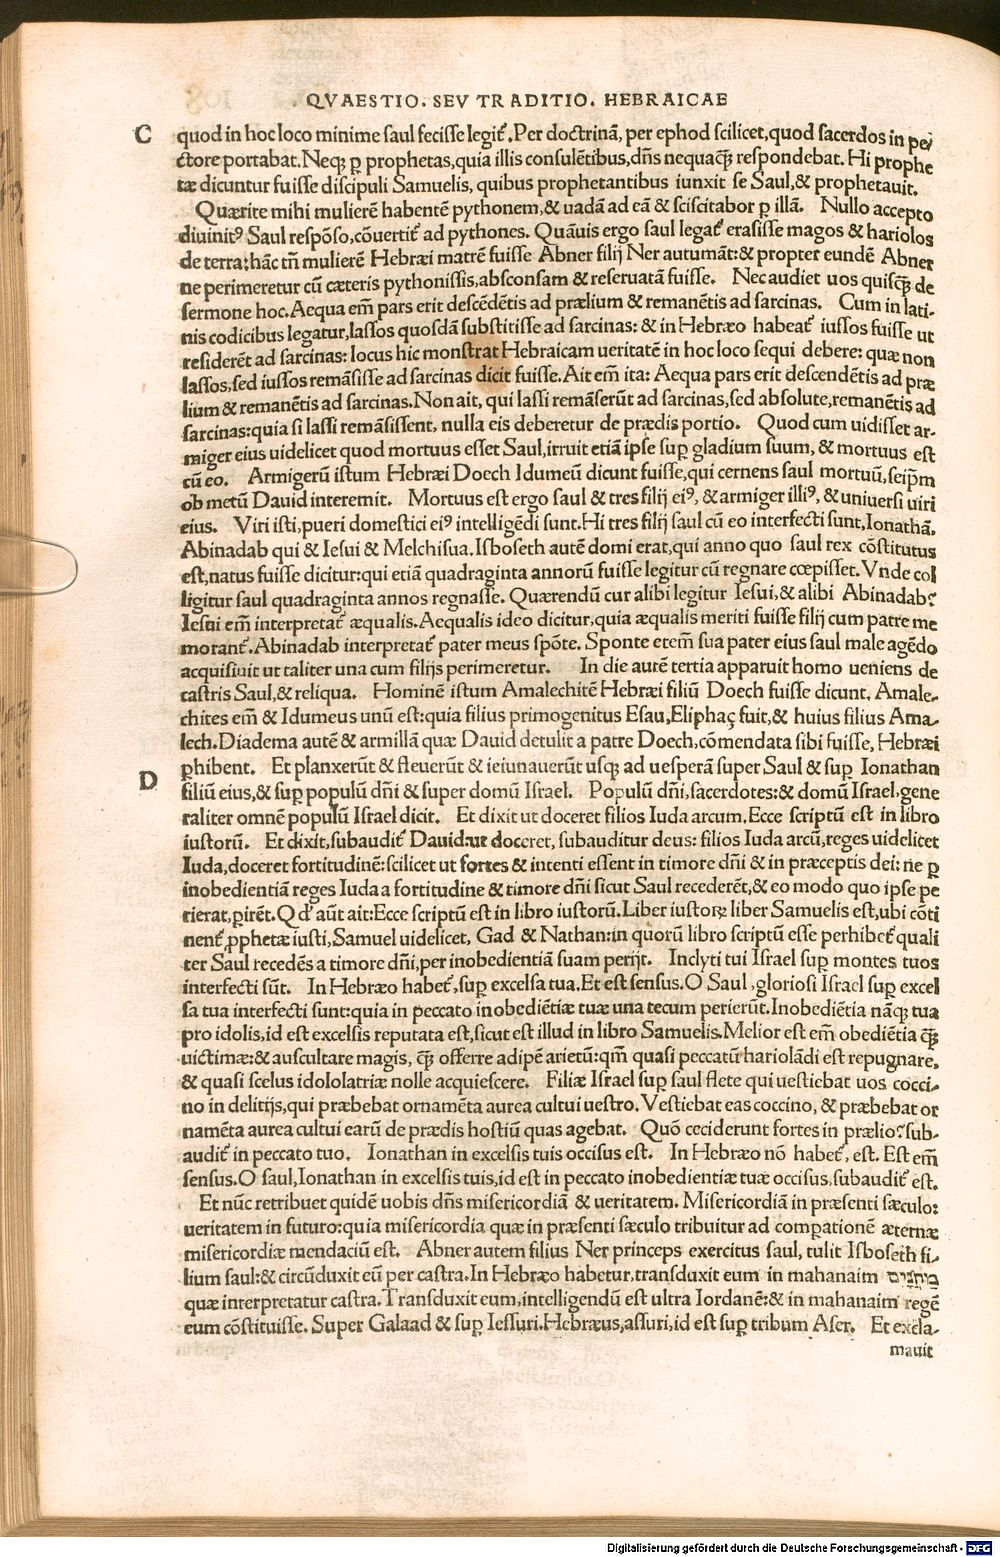 QVAESTIO. SEV TRADITIO. HEBRAICAE
C
quod in hoc loco minime saul fecisse legit᷑. Per doctrinā, per ephod scilicet, quod sacerdos in pe/
ctore portabat. Neqꝫ ꝑ prophetas, quia illis consulētibus, dn̄s nequaꝗ̄ respondebat. Hi prophe
tæ dicuntur fuisse discipuli Samuelis, quibus prophetantibus iunxit se Saul, & prophetauit.
Quærite mihi mulierē habentē pythonem, & uadā ad eā & sciscitabor ꝑ illā. Nullo accepto
diuinitꝰ Saul respōso, cōuertit᷑ ad pythones. Quāuis ergo saul legat᷑ erasisse magos & hariolos
de terra: hāc tn̄ mulierē Hebræi matrē fuisse Abner filij Ner autumāt: & propter eundē Abner
ne perimeretur cū cæteris pythonissis, absconsam & reseruatā fuisse. Nec audiet uos quisꝗ̄ de
sermone hoc. Aequa em̄ pars erit descēdētis ad prælium & remanētis ad sarcinas. Cum in lati-
nis codicibus legatur, lassos quosdā substitisse ad sarcinas: & in Hebræo habeat᷑ iussos fuisse ut
residerēt ad sarcinas: locus hic monstrat Hebraicam ueritatē in hoc loco sequi debere: quæ non
lassos, sed iussos remāsisse ad sarcinas dicit fuisse. Ait em̄ ita: Aequa pars erit descendētis ad præ
lium & remanētis ad sarcinas. Non ait, qui lassi remāserūt ad sarcinas, sed absolute, remanētis ad
sarcinas: quia si lassi remāsissent, nulla eis deberetur de prædis portio. Quod cum uidisset ar-
miger eius uidelicet quod mortuus esset Saul, irruit etiā ipse suꝑ gladium suum, & mortuus est
cū eo. Armigerū istum Hebræi Doech Idumeū dicunt fuisse, qui cernens saul mortuū, seip̄m
ob metū Dauid interemit. Mortuus est ergo saul & tres filij eiꝰ, & armiger illiꝰ, & uniuersi uiri
eius. Viri isti, pueri domestici eiꝰ intelligēdi sunt. Hi tres filij saul cū eo interfecti sunt, Ionathā,
Abinadab qui & Iesui & Melchisua. Isboseth autē domi erat, qui anno quo saul rex cōstitutus
est, natus fuisse dicitur: qui etiā quadraginta annorū fuisse legitur cū regnare cœpisset. Vnde col
ligitur saul quadraginta annos regnasse. Quærendū cur alibi legitur Iesui, & alibi Abinadab?
Iesui em̄ interpretat᷑ æqualis. Aequalis ideo dicitur, quia æqualis meriti fuisse filij cum patre me
morant᷑. Abinadab interpretat᷑ pater meus spōte. Sponte etem̄ sua pater eius saul male agēdo
acquisiuit ut taliter una cum filijs perimeretur. In die autē tertia apparuit homo ueniens de
castris Saul, & reliqua. Hominē istum Amalechitē Hebræi filiū Doech fuisse dicunt. Amale-
chites em̄ & Idumeus unū est: quia filius primogenitus Esau, Eliphaç fuit, & huius filius Ama-
lech. Diadema autē & armillā quæ Dauid detulit a patre Doech, cōmendata sibi fuisse, Hebræi
ꝑhibent. Et planxerūt & fleuerūt & ieiunauerūt usqꝫ ad uesperā super Saul & suꝑ Ionathan
D
filiū eius, & suꝑ populū dn̄i & super domū Israel. Populū dn̄i, sacerdotes: & domū Israel, gene
raliter omnē populū Israel dicit. Et dixit ut doceret filios Iuda arcum. Ecce scriptū est in libro
iustorū. Et dixit, subaudit᷑ Dauid: ut doceret, subauditur deus: filios Iuda arcū, reges uidelicet
Iuda, doceret fortitudinē: scilicet ut fortes & intenti essent in timore dn̄i & in præceptis dei: ne ꝑ
inobedientiā reges Iuda a fortitudine & timore dn̄i sicut Saul recederēt, & eo modo quo ipse pe
rierat, ꝑirēt. Qd᷑ aūt ait: Ecce scriptū est in libro iustorū. Liber iustoꝝ liber Samuelis est, ubi cōti
nent᷑ ꝓphetæ iusti, Samuel uidelicet, Gad & Nathan: in quorū libro scriptū esse perhibet᷑ quali
ter Saul recedēs a timore dn̄i, per inobedientiā suam perijt. Inclyti tui Israel suꝑ montes tuos
interfecti sūt. In Hebræo habet᷑, suꝑ excelsa tua. Et est sensus. O Saul, gloriosi Israel suꝑ excel
sa tua interfecti sunt: quia in peccato inobediētiæ tuæ una tecum perierūt. Inobediētia nāqꝫ tua
pro idolis, id est excelsis reputata est, sicut est illud in libro Samuelis. Melior est em̄ obediētia ꝗ̄
uictimæ: & auscultare magis, ꝗ̄ offerre adipē arietū: qm̄ quasi peccatū hariolādi est repugnare,
& quasi scelus idololatriæ nolle acquiescere. Filiæ Israel suꝑ saul flete qui uestiebat uos cocci-
no in delitijs, qui præbebat ornamēta aurea cultui uestro. Vestiebat eas coccino, & præbebat or
namēta aurea cultui earū de prædis hostiū quas agebat. Quō ceciderunt fortes in prælio? sub-
audit᷑ in peccato tuo. Ionathan in excelsis tuis occisus est. In Hebræo nō habet᷑, est. Est em̄
sensus. O saul, Ionathan in excelsis tuis, id est in peccato inobedientiæ tuæ occisus, subaudit᷑ est.
Et nūc retribuet quidē uobis dn̄s misericordiā & ueritatem. Misericordiā in præsenti sæculo:
ueritatem in futuro: quia misericordia quæ in præsenti sæculo tribuitur ad comꝑationē æternæ
misericordiæ mendaciū est. Abner autem filius Ner princeps exercitus saul, tulit Isboseth fi-
lium saul: & circūduxit eū per castra. In Hebræo habetur, transduxit eum in mahanaim מחנים
quæ interpretatur castra. Transduxit eum, intelligendū est ultra Iordanē: & in mahanaim regē
eum cōstituisse. Super Galaad & suꝑ Iessuri. Hebræus, assuri, id est suꝑ tribum Aser. Et excla-
mauit
Digitalisierung gefördert durch die Deutsche Forschungsgemeinschaft - DFG